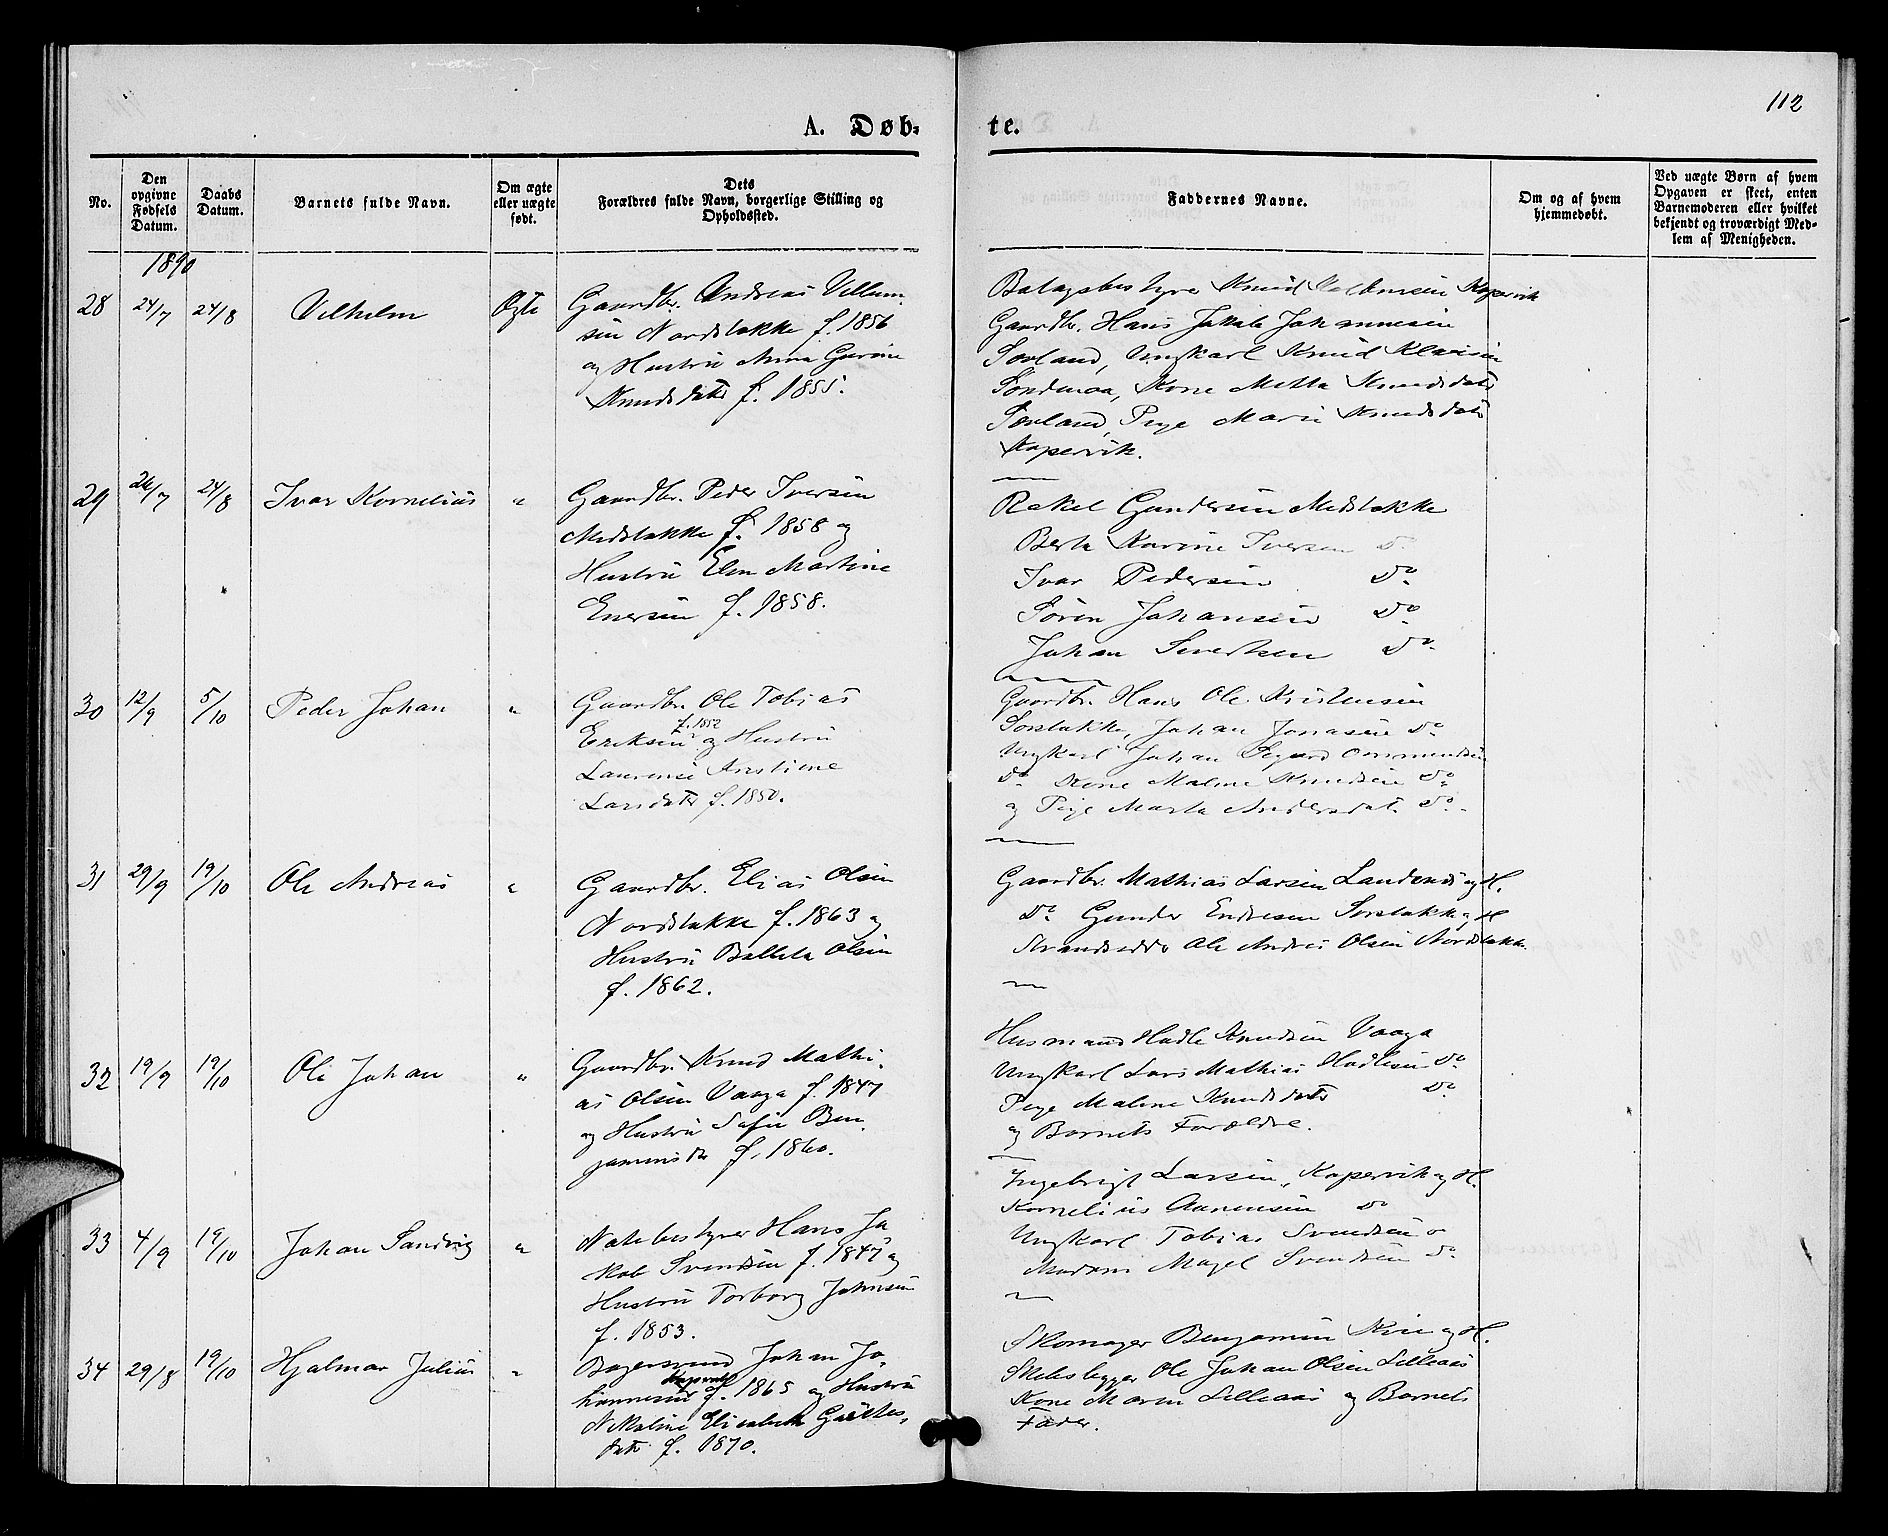 112
A. Døb-
te.
No.
Den
opgivne
Fødsels
Datum.
Daabs
Datum.
Barnets fulde Navn.
Om ægte
eller uægte
født.
Dets
Forældres fulde Navn, borgerlige Stilling og
Opholdssted.
Faddernes Navne.
Om og af hvem
hjemmedøbt.
Ved uægte Børn af hvem
Opgaven er skeet, enten
Barnemoderen eller hvilket
bekjendt og troværdigt Med-
lem af Menigheden.
1890
28 24/7 24/8 Vilhelm Ægte
Gaardbr. Andreas Villum-
sen Nordstokke f. 1856
og Hustru Anna Gurine
Knudsdatr f. 1855.
Knud Kopervik
Gaardbr. Hans Jakob Johannesen
Sørland, Ungkarl Knud
Kone Mette Knudsdatr
Sørland, Pige Mari Knudsdatr
Kopervik.
29 26/7 24/8 Ivar Kornelius "
Gaardbr. Peder Iversen
Medstokke f. 1858 og
Hustru Elen Martine
Enersen f. 1858.
Rakel Gundersen Medstokke
Berta Karine Iversen do
Ivar Pedersen do
Sören Johansen do
Johan Sivertsen do
30 12/9 5/10 Peder Johan "
Gaardbr. Ole Tobias
Eriksen f. 1852 og Hustru
Laurense Kristiene
Larsdatr f. 1850.
Gaardbr. Hans Ole Kristensen
Sørstokke, Johan Jonasen do
Ungkarl Johan Sigurd Ommundsen
do Kone Malene Knudsen do
og Pige Marta Andersdat. do
31 29/9 19/10 Ole Andreas "
Gaardbr. Elias Olsen
Nordstokke f. 1863 og
Hustru Bolleta Olsen
f. 1862.
Gaardbr. Mathias Larsen og H.
do Gunder Endresen Sørstokke og H
Ole Andreas Olsen Nordstokke
32 19/9 19/10 Ole Johan "
Gaardbr. Knud Mathi-
as Olsen Vaaga f. 1847
og Hustru Sofie Ben-
jaminsdr f. 1860.
Husmand Hadle Knudsen Vaaga
Ungkarl Lars Mathias Hadlesen do
Pige Malene Knudsdatr do
og Barnets Forældre.
33 4/9 19/10 Johan Sandvig "
Notebestyrer Hans Ja-
kob Svendsen f. 1847 og
Hustru Torborg Johnsen
f. 1853.
Ingebrigt Larsen, Kopervik og H.
Kornelius Aanensen do
Ungkarl Tobias Svendsen do
Madam Magel Svendsen do
34 29/8 19/10 Hjalmar Julius "
Bagersvend Johan Jo-
hannesen Kopervik f. 1865 og Hustru
Nikoline Elisabeth
datr f. 1870.
Skomager Benjamin og H.
Ole Johan Olsen Lilleaas
Kone Maren Lilleaas og Barnets
Fader.